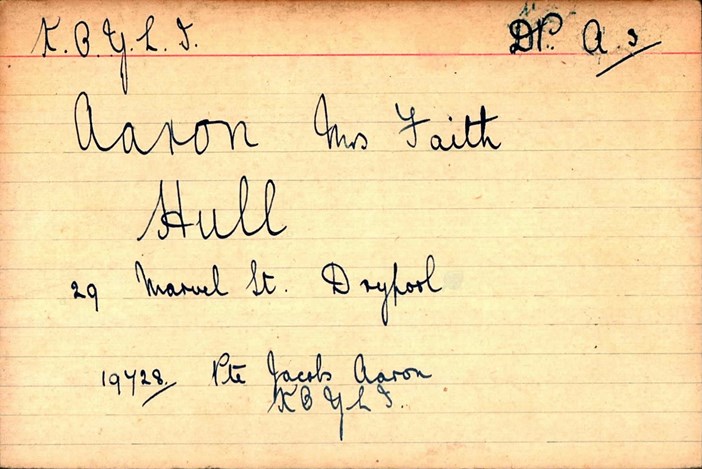 K.O.Y.L.I. DP. A 3
Aaron Mrs Faith
Hull
29 Marvel St. Drypool
19728. Pte Jacob Aaron
K O Y L I.